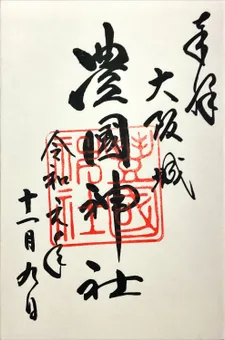 奉拝
大阪城
豊國神社
令和元年
十一月九日